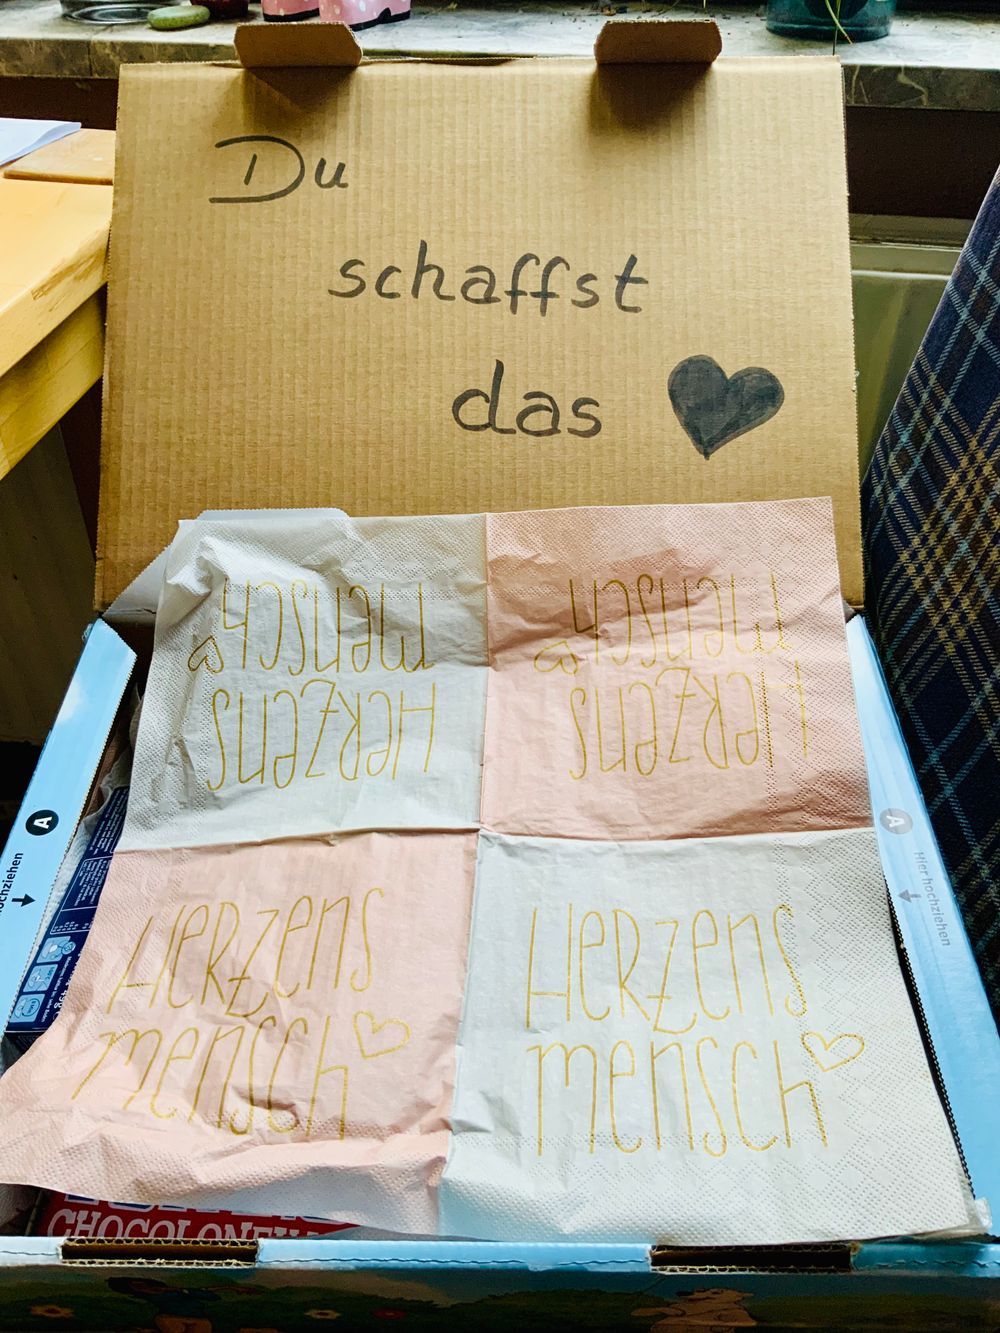 Du
schaffst
das
Herzens
mensch
Herzens
mensch
Herzens
mensch
Herzens
mensch
A
A
Hier hochziehen
ochziehen